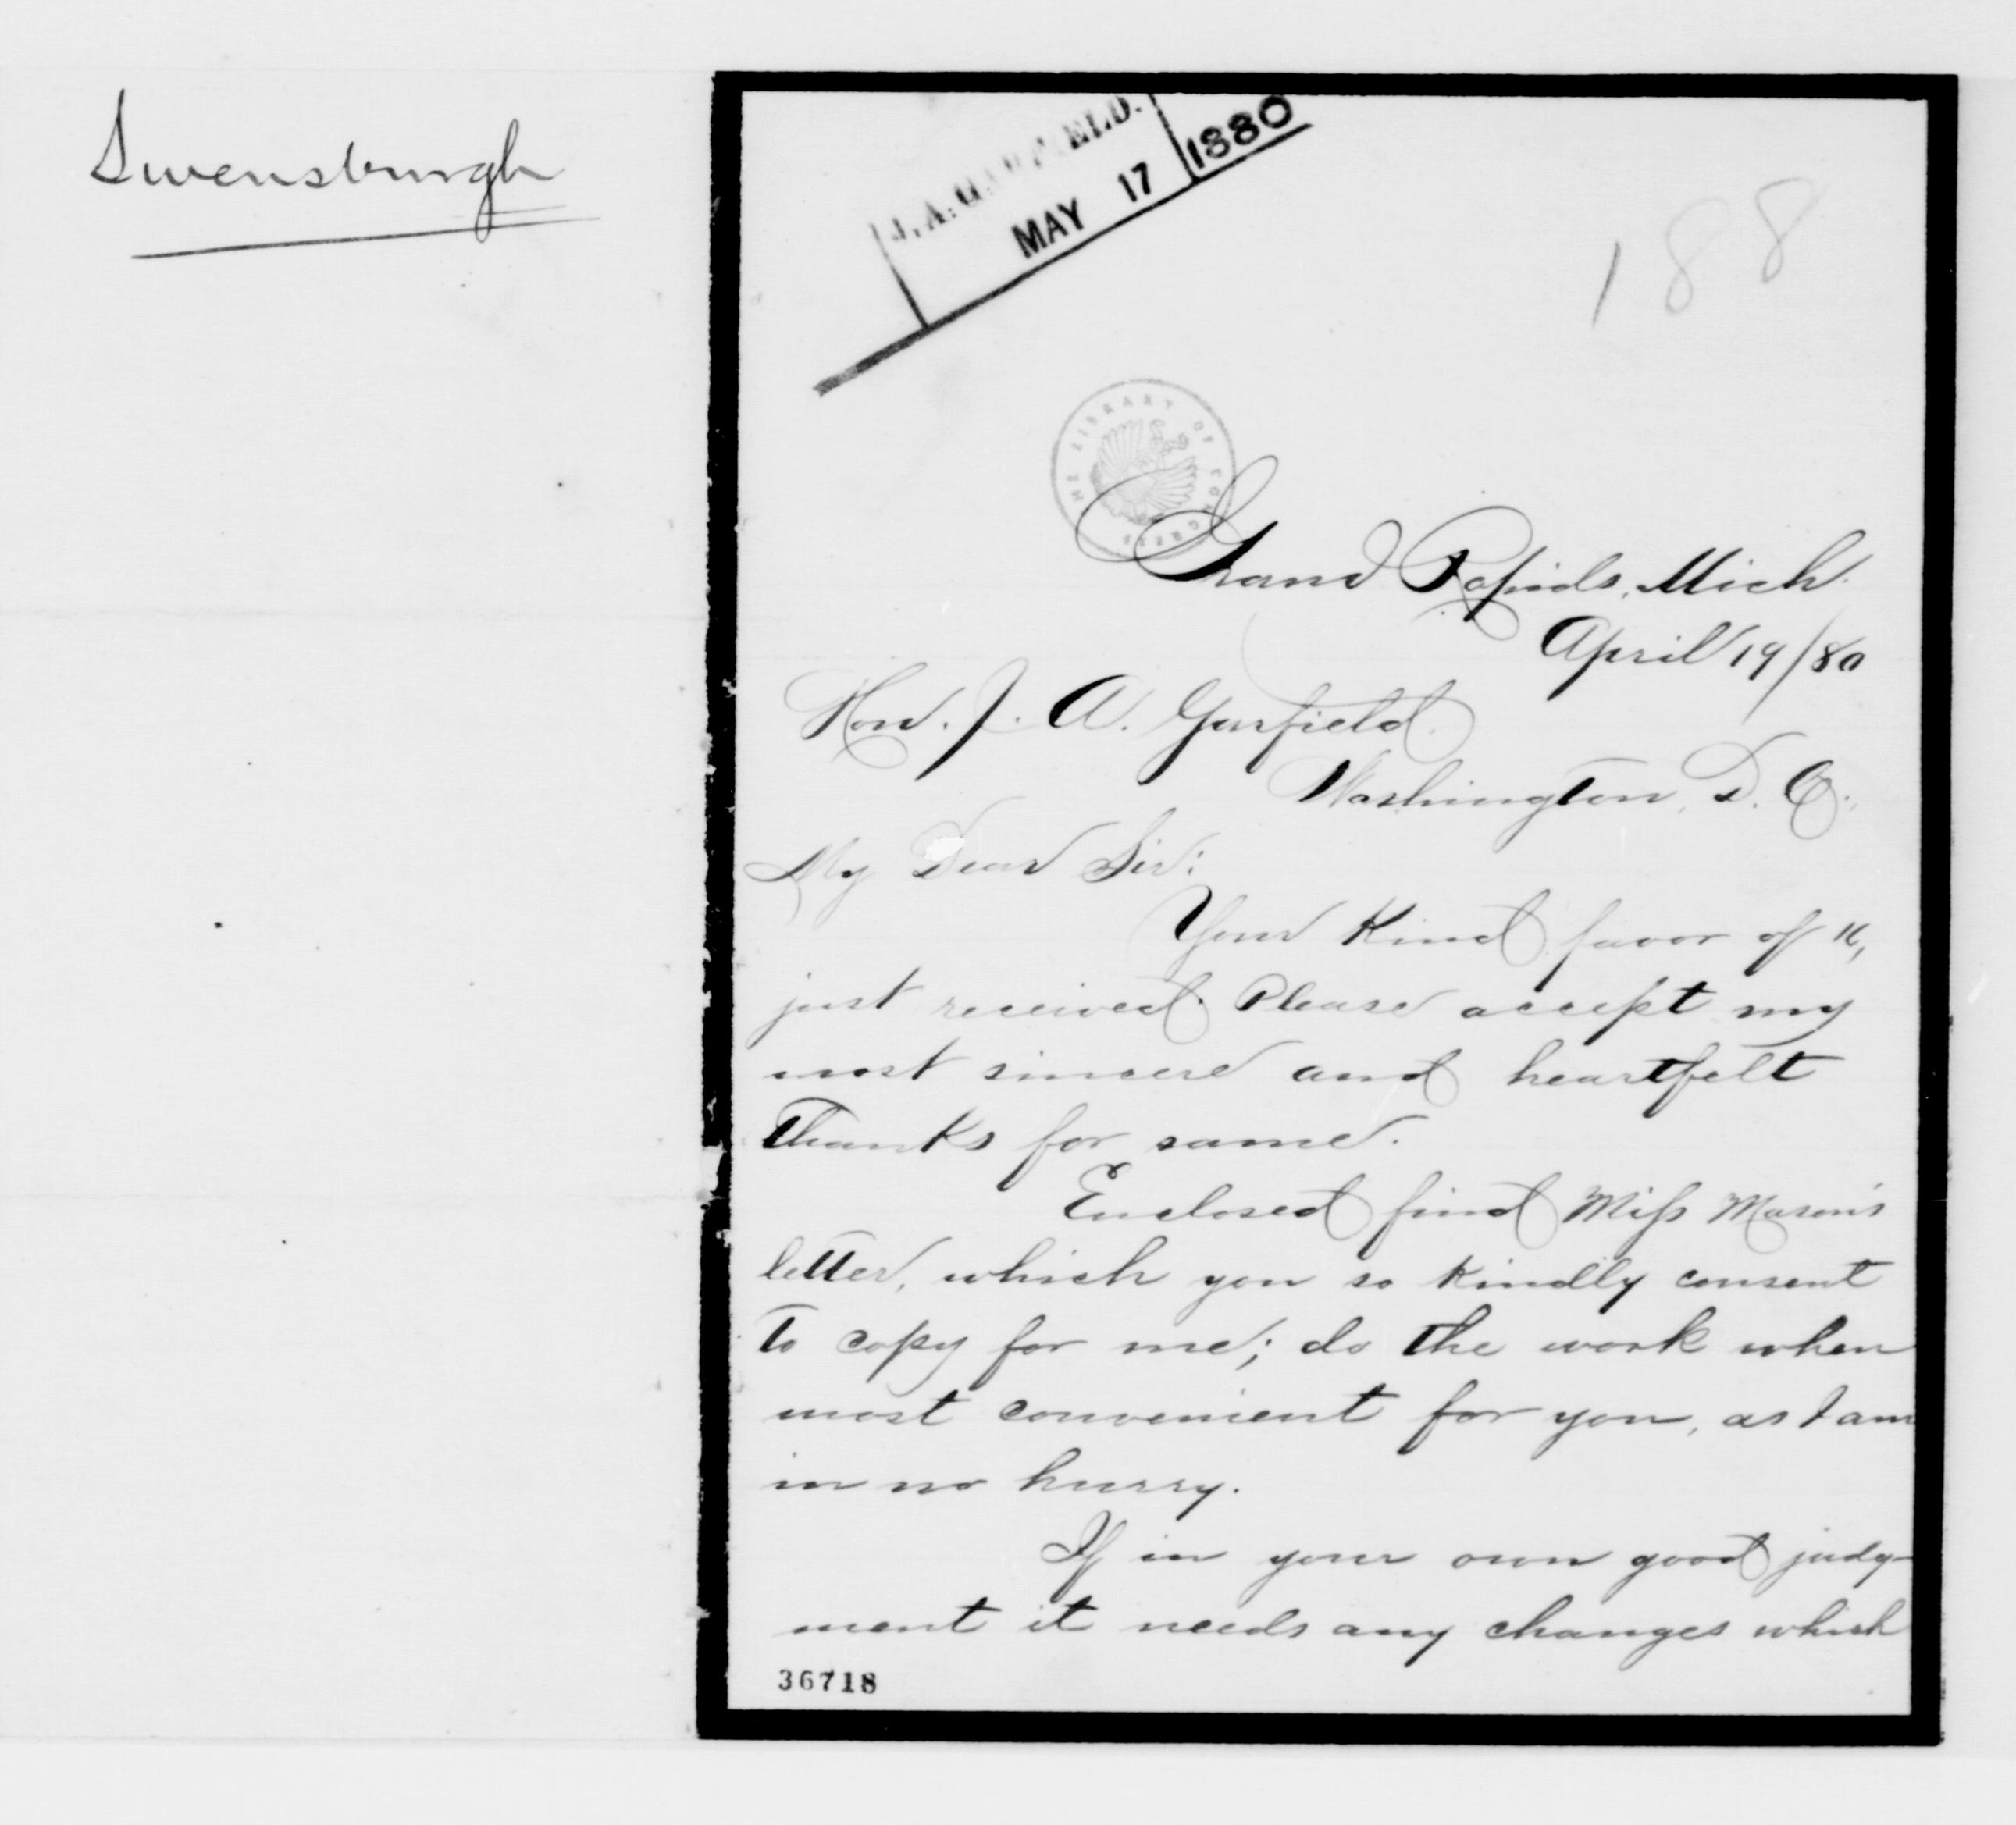 Swensburgh
J. A. GARFIELD.
MAY 17 1880
188
THE LIBRARY OF CONGRESS
Grand Rapids, Mich.
April 19/80
Hon. J. A. Garfield.
Washington, D. C.,
My Dear Sir:
Your kind favor of
just received. Please accept my
most sincere and heartfelt
thanks for same.
Enclosed find Miss Mason's
letter, which you so kindly consent
to copy for me; do the work when
most convenient for you, as I am
in no hurry.
If in your own good judg-
ment it needs any changes which
36718